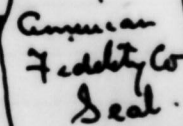 American
Fidelity Co
Seal.